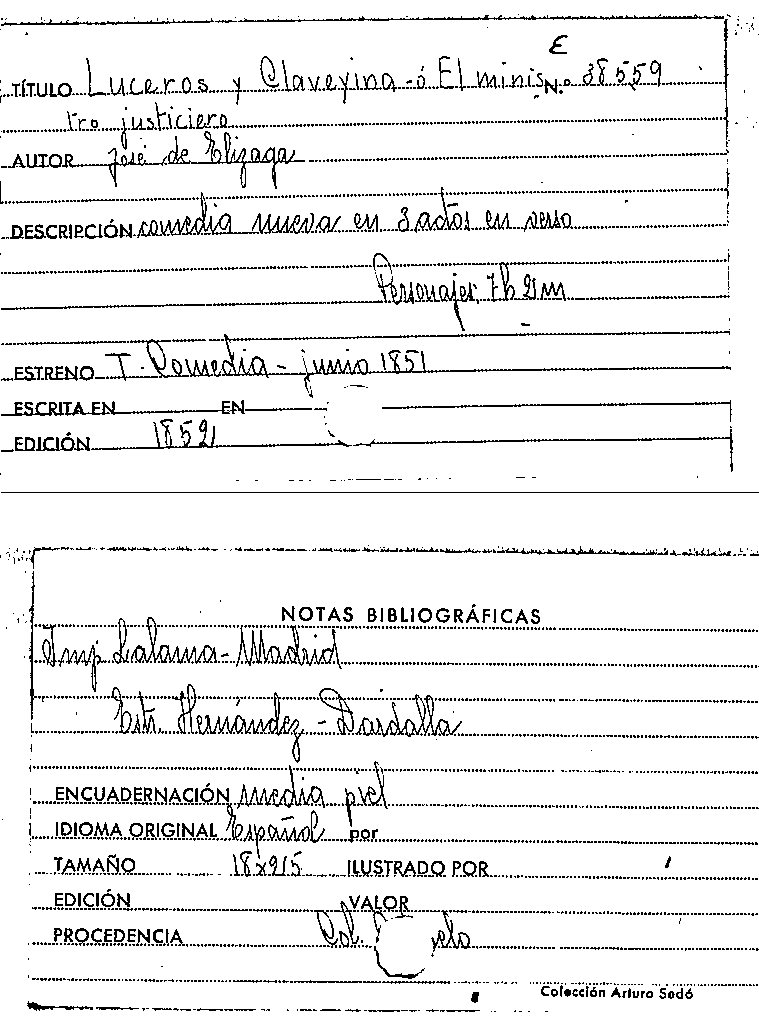 E
TÍTULO Luceros y Claveyina - ó El minis N.º 38559
tro justiciero
AUTOR José de Elizaga
DESCRIPCIÓN comedia nueva en 3 actos en verso
Personajes 7h 2m
ESTRENO T. Comedia - junio 1851
ESCRITA EN EN
EDICIÓN 1852
NOTAS BIBLIOGRÁFICAS
Imp Lalama - Madrid
Estr. Hernández - Dardalla
ENCUADERNACIÓN media piel
IDIOMA ORIGINAL Español por
TAMAÑO 18x2/5 ILUSTRADO POR
EDICIÓN VALOR
PROCEDENCIA Col.
Colección Arturo Sedó